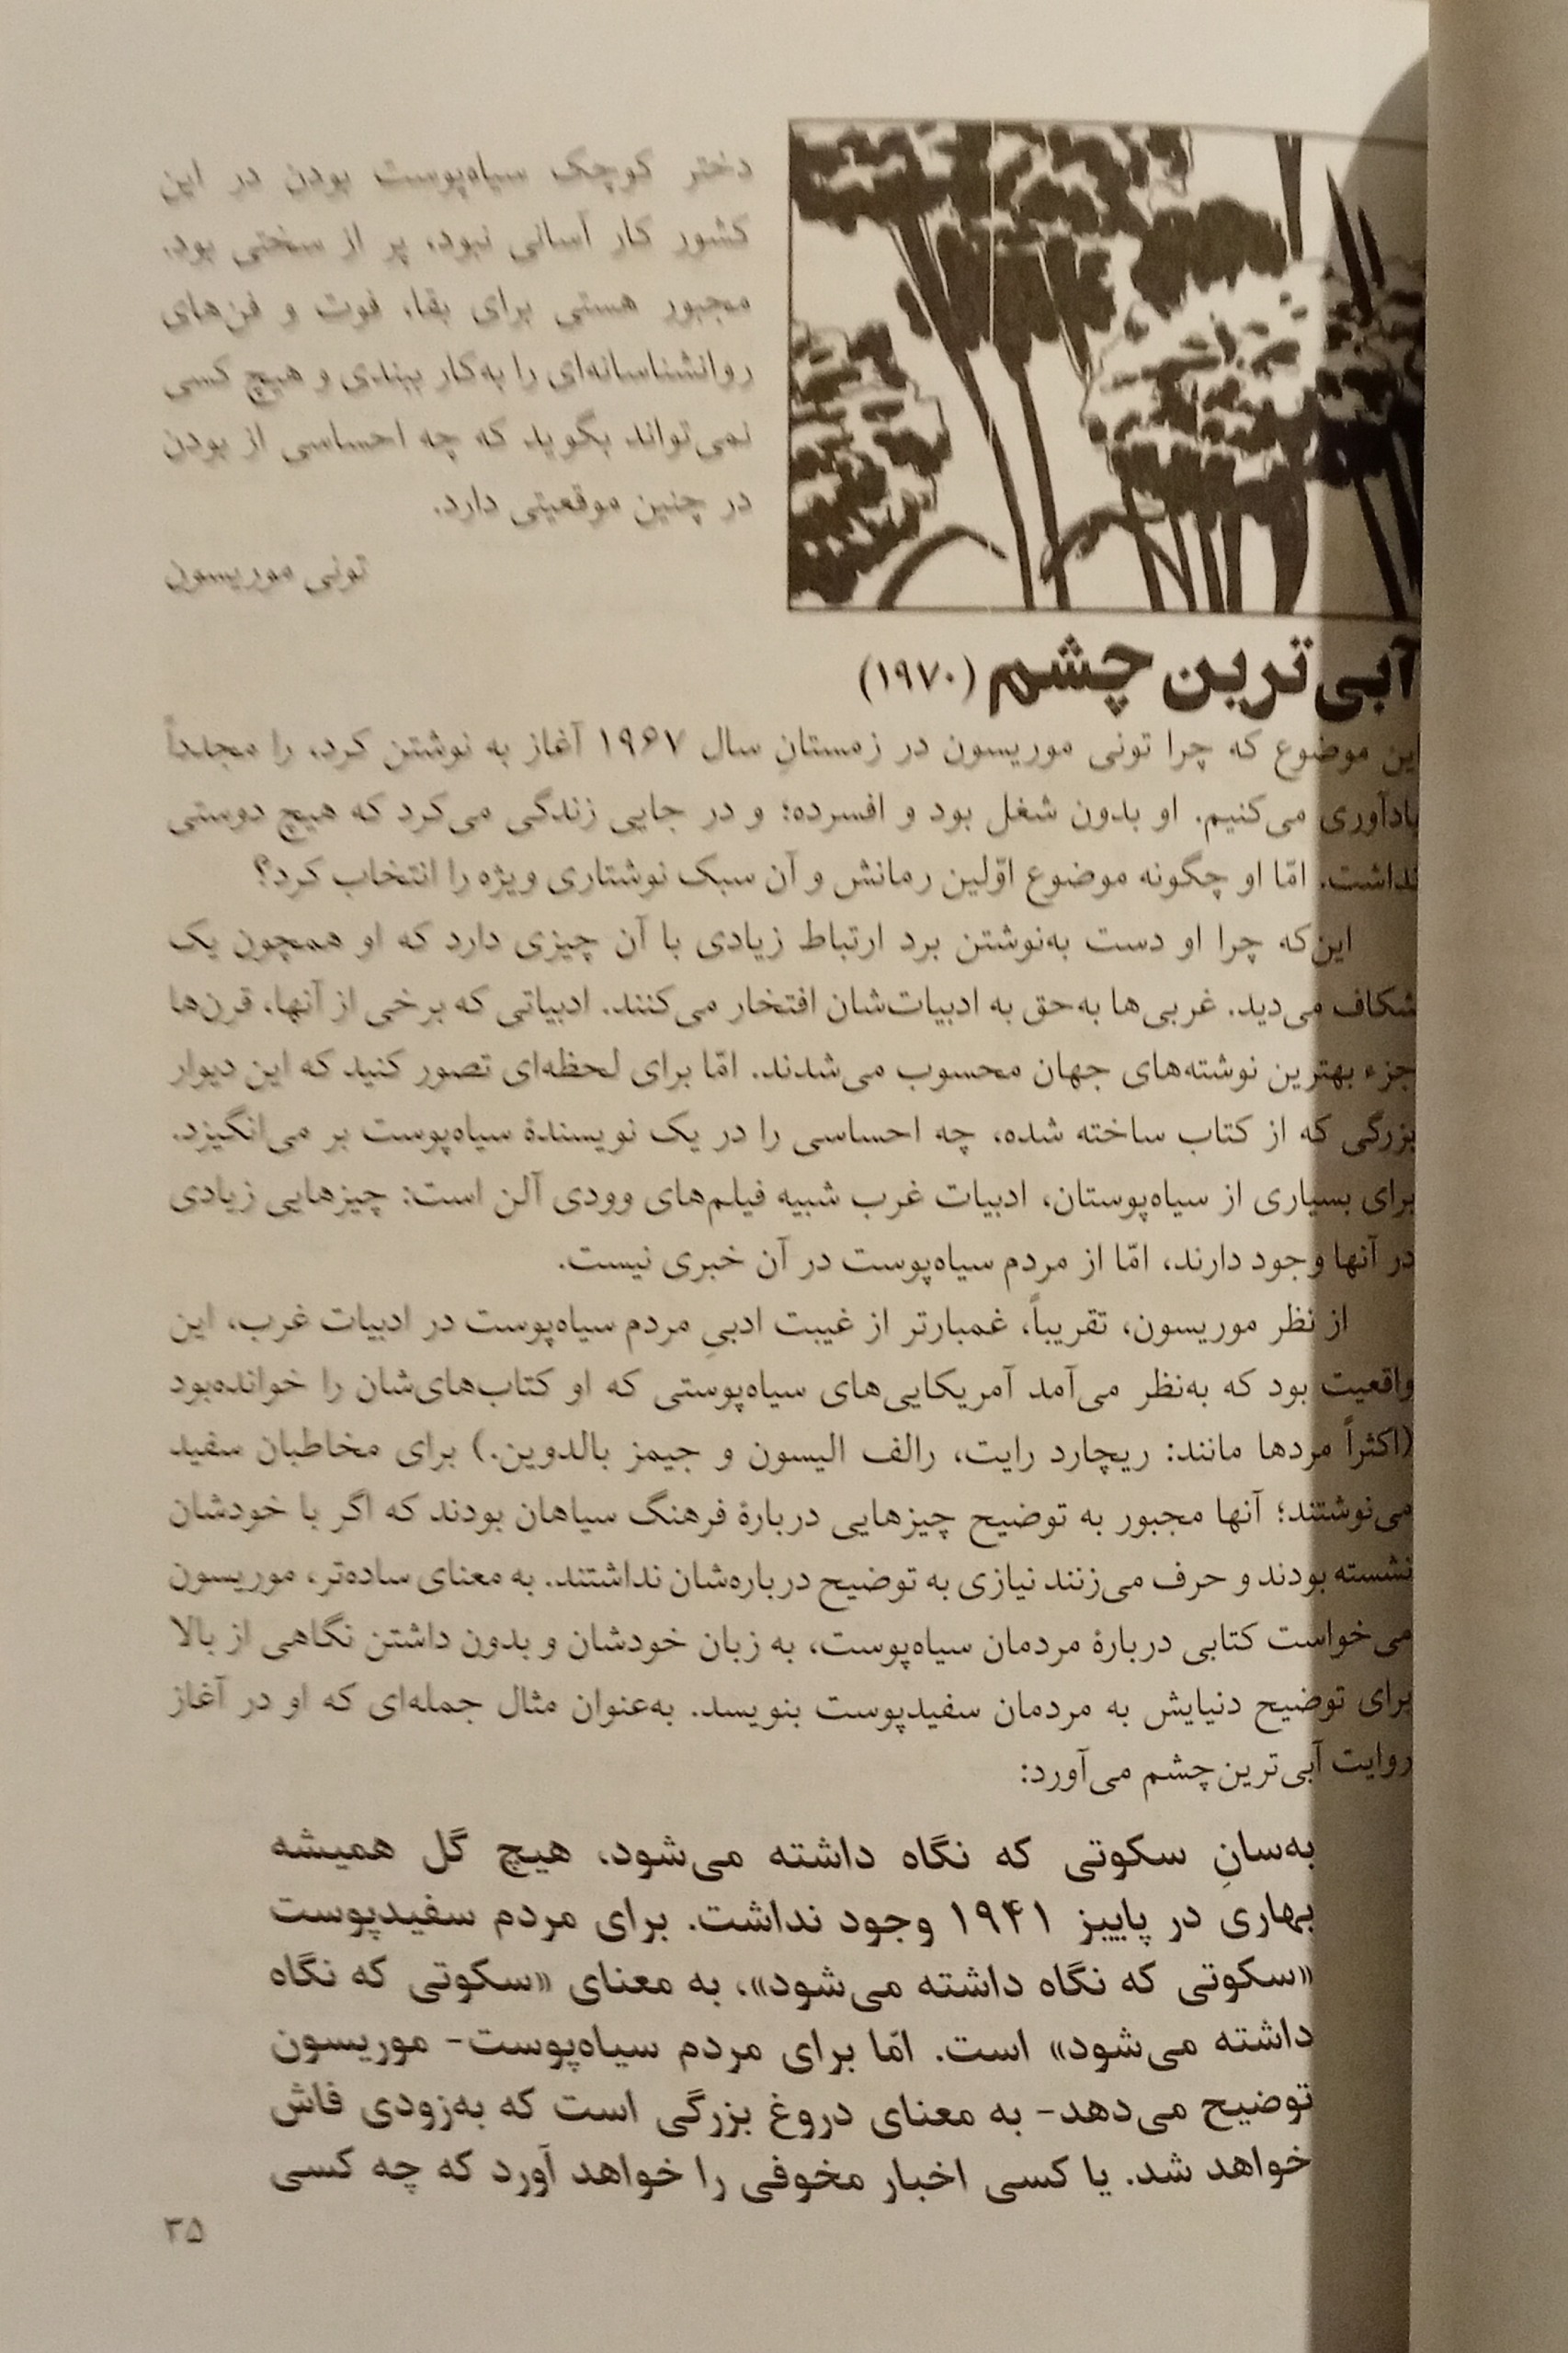 دختر کوچک سیاه‌پوست بودن در این
کشور کار آسانی نبود، پر از سختی بود.
مجبور هستی برای بقا، فوت و فن‌های
روانشناسانه‌ای را به‌کار ببندی و هیچ کسی
نمی‌تواند بگوید که چه احساسی از بودن
در چنین موقعیتی دارد.
تونی موریسون
آبی‌ترین چشم (۱۹۷۰)
این موضوع که چرا تونی موریسون در زمستانِ سال ۱۹۶۷ آغاز به نوشتن کرد، را مجدداً
یادآوری می‌کنیم. او بدون شغل بود و افسرده؛ و در جایی زندگی می‌کرد که هیچ دوستی
نداشت. امّا او چگونه موضوع اوّلین رمانش و آن سبک نوشتاری ویژه را انتخاب کرد؟
این‌که چرا او دست به‌نوشتن برد ارتباط زیادی با آن چیزی دارد که او همچون یک
شکاف می‌دید. غربی‌ها به‌حق به ادبیات‌شان افتخار می‌کنند. ادبیاتی که برخی از آنها، قرن‌ها
جزء بهترین نوشته‌های جهان محسوب می‌شدند. امّا برای لحظه‌ای تصور کنید که این دیوار
بزرگی که از کتاب ساخته شده، چه احساسی را در یک نویسندهٔ سیاه‌پوست بر می‌انگیزد.
برای بسیاری از سیاه‌پوستان، ادبیات غرب شبیه فیلم‌های وودی آلن است: چیزهایی زیادی
در آنها وجود دارند، امّا از مردم سیاه‌پوست در آن خبری نیست.
از نظر موریسون، تقریباً، غمبارتر از غیبت ادبیِ مردم سیاه‌پوست در ادبیات غرب، این
واقعیت بود که به‌نظر می‌آمد آمریکایی‌های سیاه‌پوستی که او کتاب‌های‌شان را خوانده‌بود
(اکثراً مردها مانند: ریچارد رایت، رالف الیسون و جیمز بالدوین.) برای مخاطبان سفید
می‌نوشتند؛ آنها مجبور به توضیح چیزهایی دربارهٔ فرهنگ سیاهان بودند که اگر با خودشان
نشسته بودند و حرف می‌زنند نیازی به توضیح درباره‌شان نداشتند. به معنای ساده‌تر، موریسون
می‌خواست کتابی دربارهٔ مردمان سیاه‌پوست، به زبان خودشان و بدون داشتن نگاهی از بالا
برای توضیح دنیایش به مردمان سفیدپوست بنویسد. به‌عنوان مثال جمله‌ای که او در آغاز
روایت آبی‌ترین‌چشم می‌آورد:
به‌سانِ سکوتی که نگاه داشته می‌شود، هیچ گل همیشه
بهاری در پاییز ۱۹۴۱ وجود نداشت. برای مردم سفیدپوست
«سکوتی که نگاه داشته می‌شود»، به معنای «سکوتی که نگاه
داشته می‌شود» است. امّا برای مردم سیاه‌پوست- موریسون
توضیح می‌دهد- به معنای دروغ بزرگی است که به‌زودی فاش
خواهد شد. یا کسی اخبار مخوفی را خواهد آورد که چه کسی
۳۵